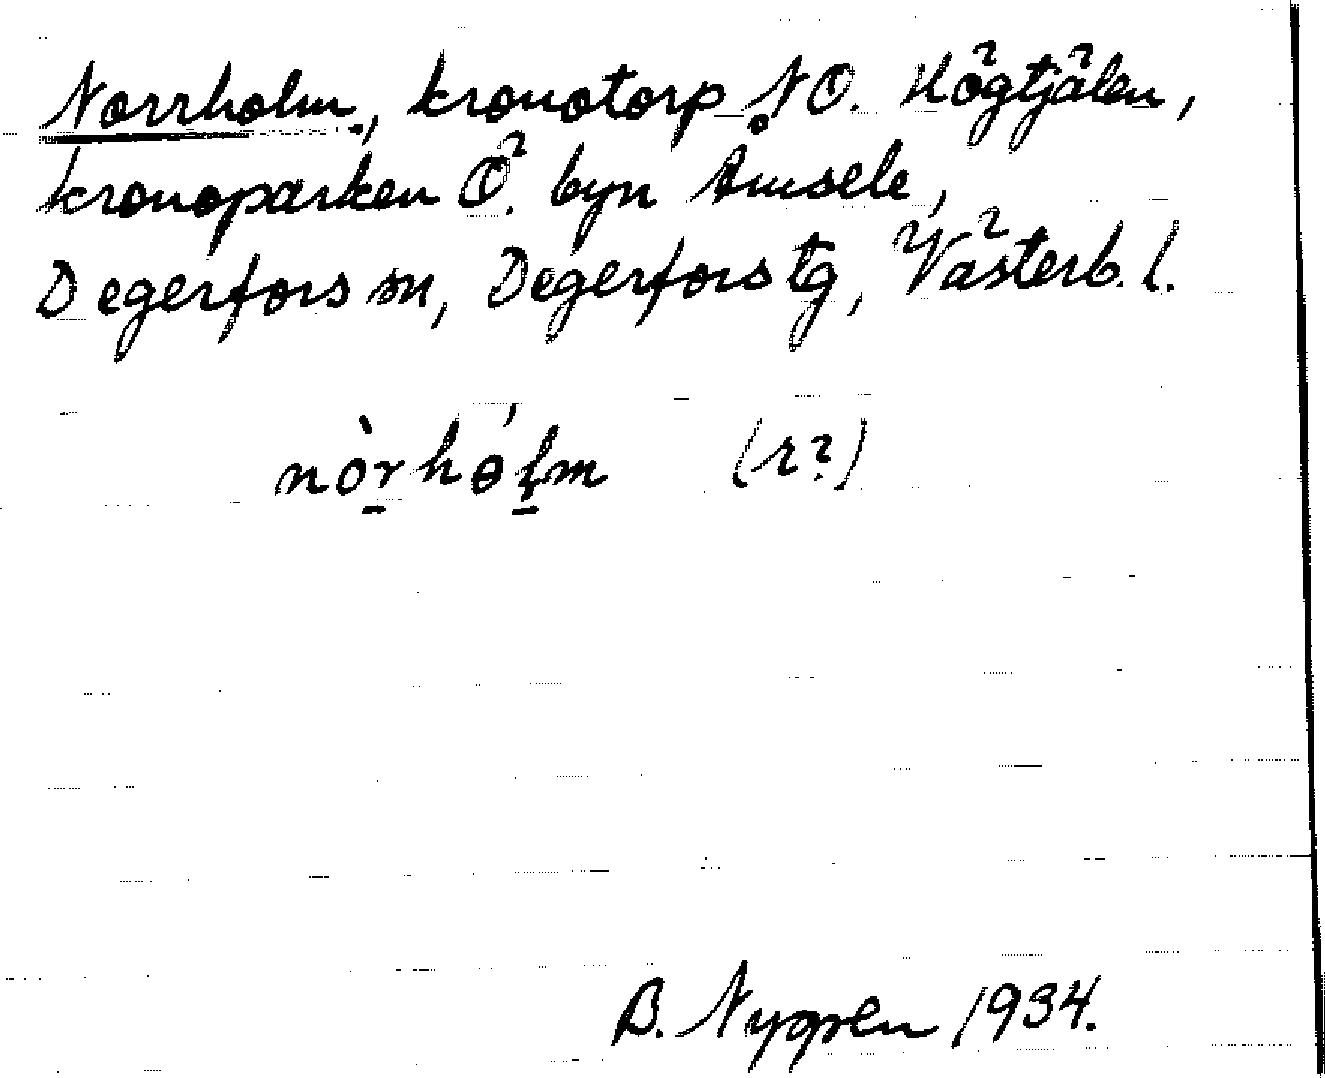 Norrholm, kronotorp NO. Högtjälen,
kronoparken Ö. byn Åmsele,
Degerfors sn, Degerfors tg, Västerb. l.
nòrhól̥m (r?)
B. Nygren 1934.